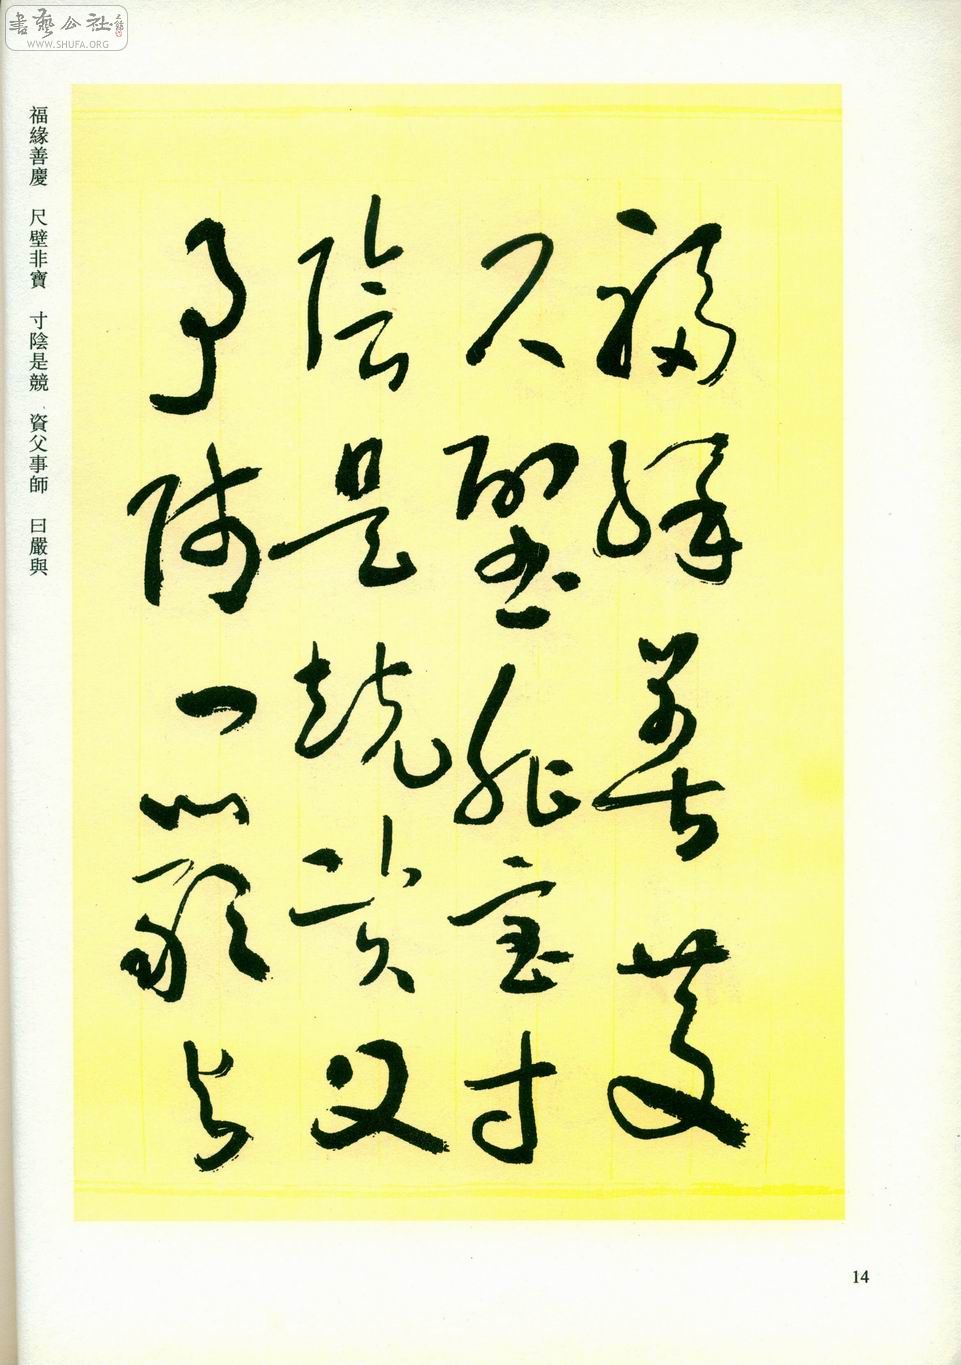 書藝公社
WWW.SHUFA.ORG
福緣善慶
尺璧非寶寸
陰是競資父
事師曰嚴與
福緣善慶 尺壁非寶 寸陰是競 資父事師 曰嚴與
14